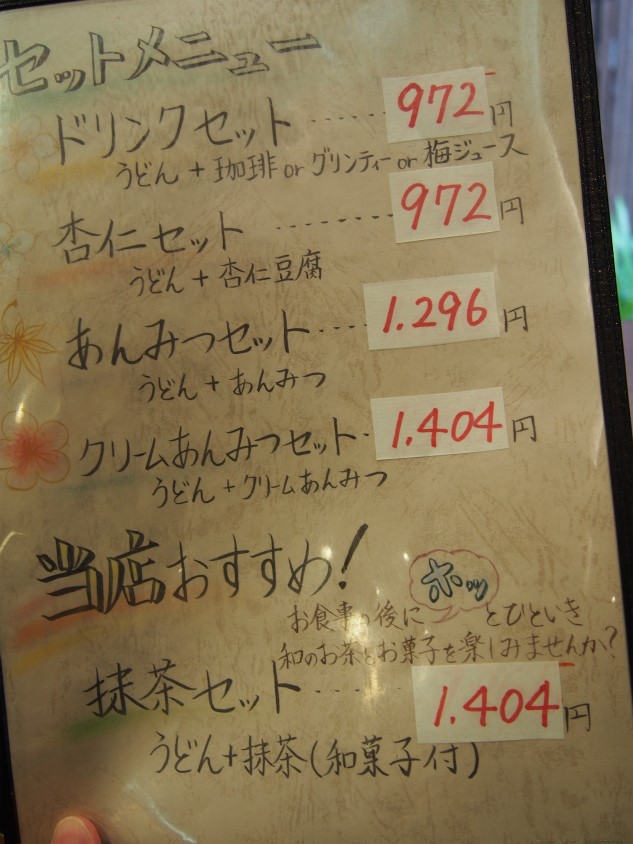 セットメニュー
ドリンクセット ‥‥‥ 972円
うどん + 珈琲 or グリンティー or 梅ジュース
杏仁セット ‥‥‥ 972円
うどん + 杏仁豆腐
あんみつセット ‥‥ 1.296円
うどん + あんみつ
クリームあんみつセット‥ 1.404円
うどん + クリームあんみつ
当店おすすめ!
お食事の後に ホッ とひといき
和のお茶とお菓子を楽しみませんか?
抹茶セット ‥‥‥ 1.404円
うどん+抹茶(和菓子付)